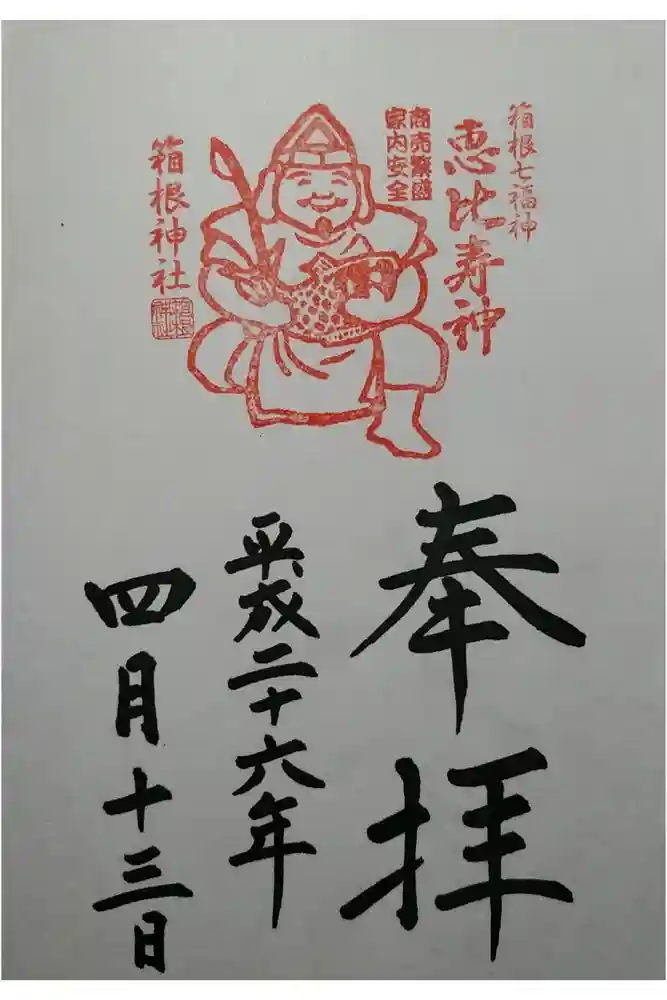 箱根七福神
恵比寿神
商売繁盛
家内安全
箱根神社
奉拝
平成二十六年
四月十三日